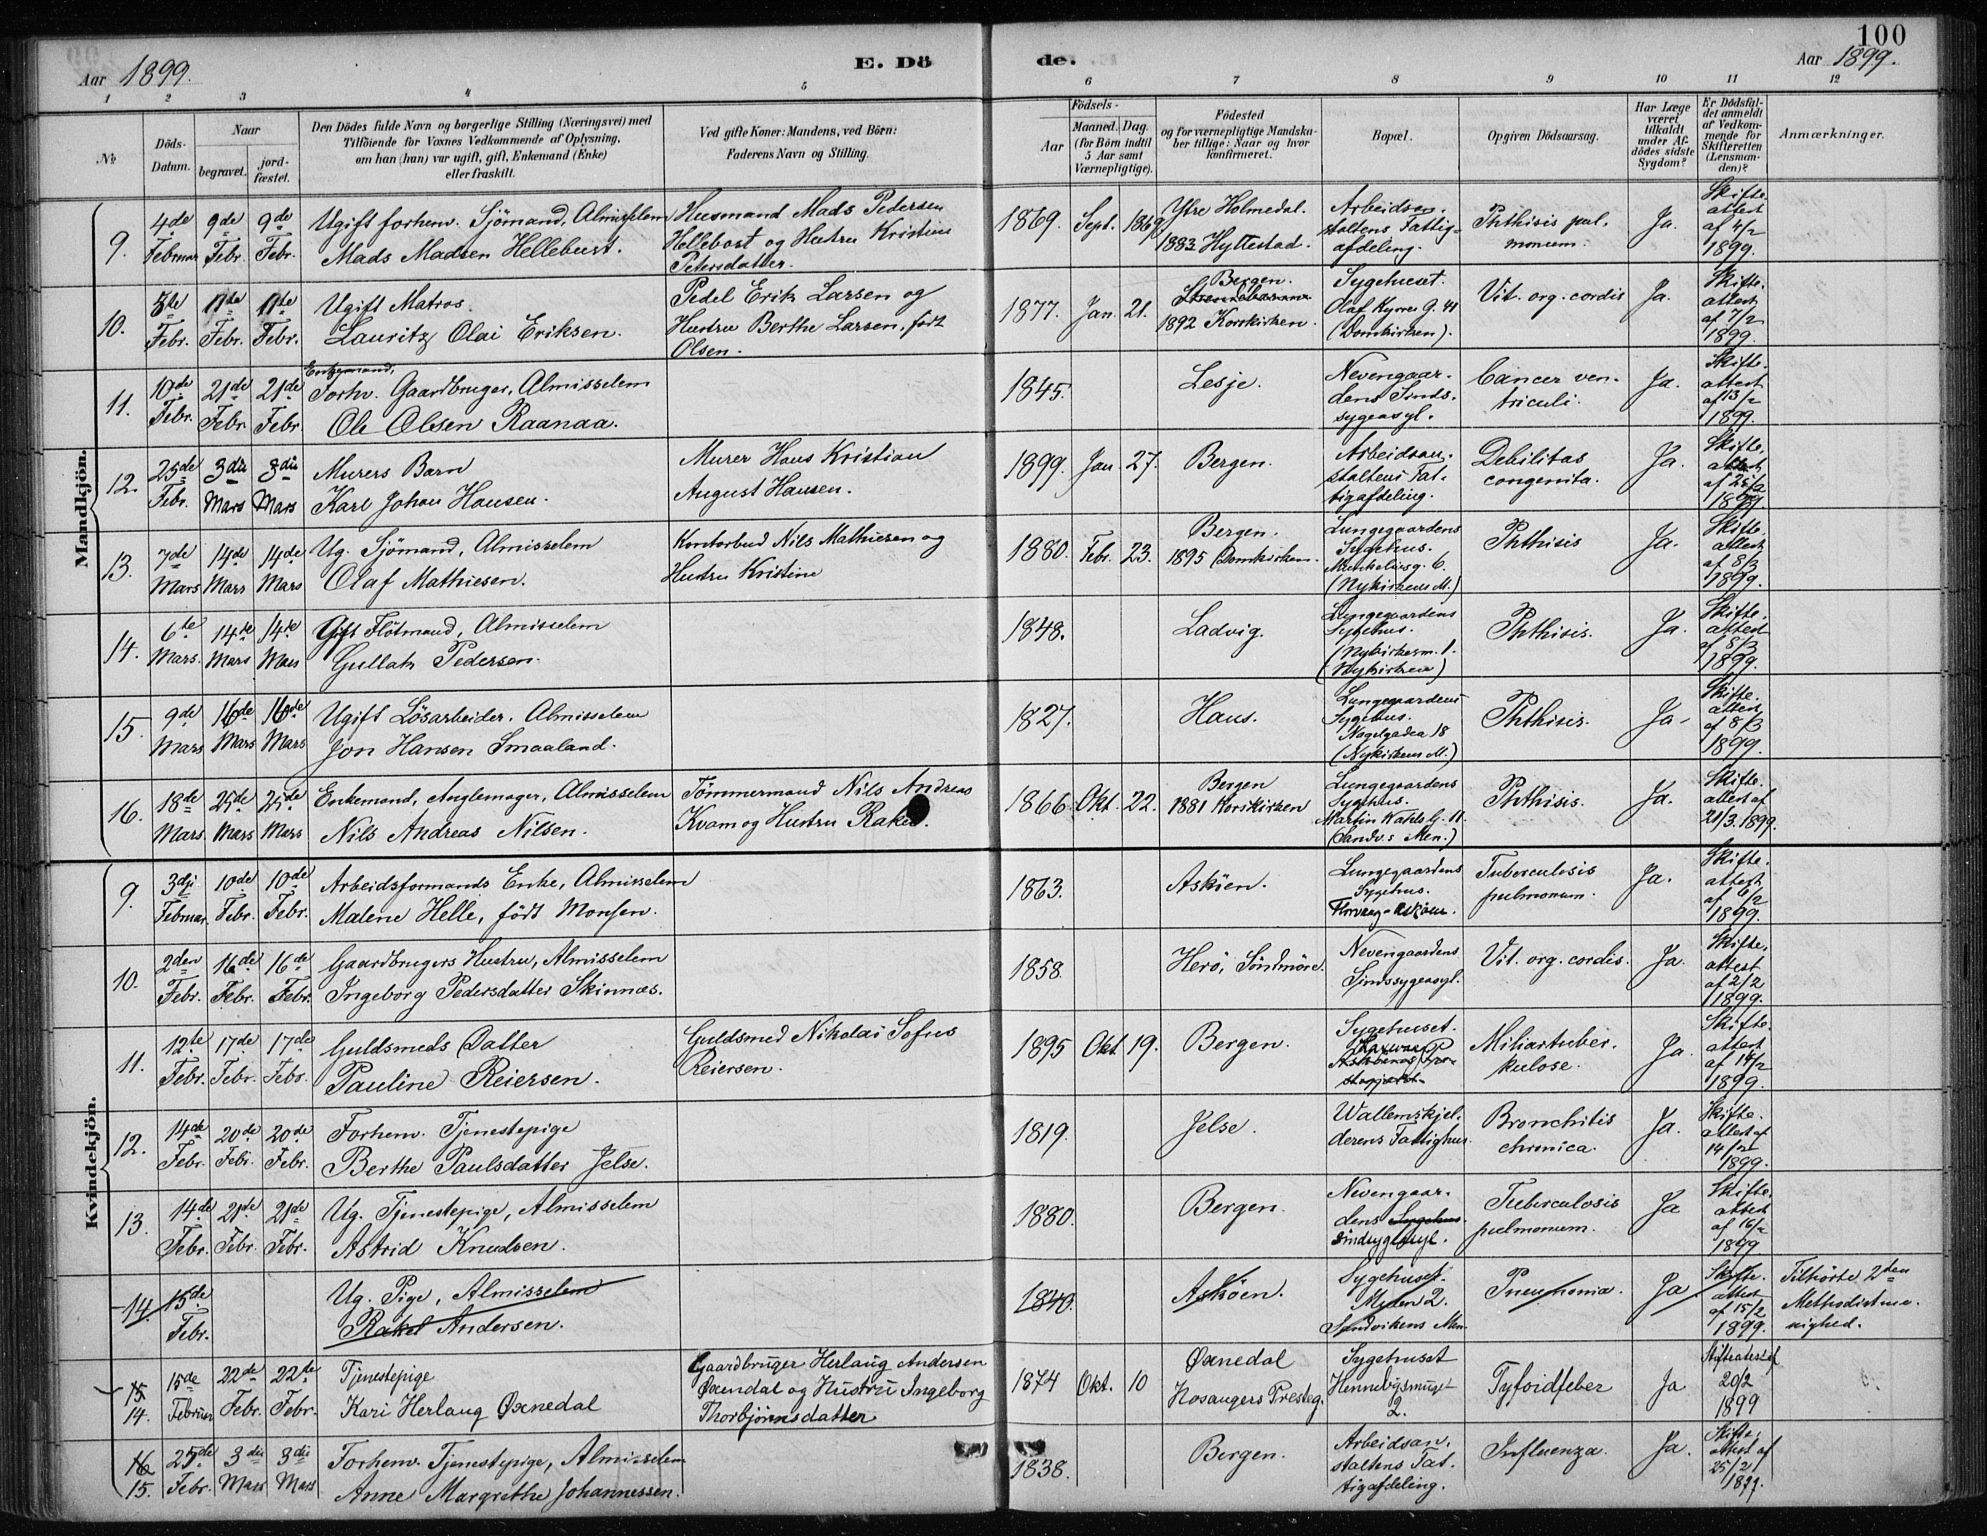 100
Aar 1899.
E. Dö
de.
Aar 1899.
1 2 3 4 5 6 7 8 9 10 11 12
№
Döds-Datum.
Naar
begravet.
jord-fæstet.
Den Dödes fulde Navn og borgerlige Stilling (Næringsvei) med
Tilföiende for Voxnes Vedkommende af Oplysning,
om han (hun) var ugift, gift, Enkemand (Enke)
eller fraskilt.
Ved gifte Koner: Mandens, ved Börn:
Faderens Navn og Stilling.
Födsels-
Aar
Maaned. Dag.
(for Börn indtil
5 Aar samt
Værnepligtige).
Födested
og for værnepligtige Mandska-
ber tillige: Naar og hvor
konfirmeret.
Bopæl.
Opgiven Dödsaarsag.
Har Læge
været
tilkaldt
under Af-
dödes sidste
Sygdom?
Er Dödsfal-
det anmeldt
af Vedkom-
mende for
Skifteretten
(Lensman-
den)?
Anmærkninger.
Mandkjön.
9.
4de Februar
9de Febr.
9de Febr.
Ugift forhenv. Sjömand, Almisselem
Mads Madsen Hellebust.
Husmand Mads Pedersen
Hellebost og Hustru Kristine
Petersdatter.
1869 Sept. 1869
Ytre Holmedal.
1883 Hyttestad.
Arbeidsan-
staltens Fattig-
afdeling.
Phthisis pul-
monum.
Ja.
Skifte-
attest
af 4/2
1899.
10.
5te Febr.
11te Febr.
11te Febr.
Ugift Matros.
Lauritz Olai Eriksen.
Pedel Erik Larsen og
Hustru Berthe Larsen, født
Olsen.
1877. Jan. 21.
Bergen.
1892 Korskirken.
Sygehuset.
Olaf Kyrres G. 41
(Domkirken).
Vit. org. cordis
Ja.
Skifte-
attest
af 7/2
1899.
11.
10de Febr.
21de Febr.
21de Febr
Enkemand,
Forhv. Gaardbruger, Almisselem
Ole Olsen Raanaa.
1845.
Lesje.
Nevengaar-
dens Sinds-
sygeasyl.
Cancer ven-
triculi.
Ja.
Skifte-
attest
af 13/2
1899.
12.
25de Febr.
3die Mars
3die Mars
Murers Barn
Karl Johan Hansen.
Murer Hans Kristian
August Hansen.
1899. Jan. 27.
Bergen.
Arbeidsan-
staltens Fat-
tigafdeling.
Debilitas
congenita.
Ja.
Skifte-
attest
af 25/2
1899.
13.
7de Mars
14de Mars
14de Mars
Ug. Sjömand, Almisselem
Olaf Mathiesen.
Kontorbud Nils Mathiesen og
Hustru Kristine
1880. Febr. 23.
Bergen.
1895 Domkirken.
Lungegaardens
Sygehus.
6.
(Nykirkens M.)
Phthisis
Ja.
Skifte-
attest
af 8/3
1899.
14.
6te Mars.
14de Mars
14de Mars
Gift Flötmand, Almisselem
Gullak Pedersen.
1848.
Ladvig.
Lungegaardens
Sygehus.
(Nykirkesm. 1.
(Nykirken)
Phthisis.
Ja.
Skifte-
attest
af 8/3
1899.
15.
9de Mars
16de Mars
16de Mars
Ugift Lösarbeider. Almisselem
Jon Hansen Smaaland.
1827.
Haus.
Lungegaardens
Sygehus.
Nagelgaden 18
(Nykirkens M.)
Phthisis.
Ja-
Skifte-
attest
af 8/3
1899.
16.
18de Mars.
25de Mars
25de Mars
Enkemand, Anglemager, Almisselem
Nils Andreas Nilsen.
Tömmermand Nils Andreas
Kvam og Hustru Rakel.
1866. Okt. 22.
Bergen
1881 Korskirken
Lungegaardens
Sygehus.
Martin Vahls G. 11
(Sandvs Men.)
Phthisis.
Ja.
Skifte-
attest af
21/3.1899.
Kvindekjön.
9.
3dje Februar.
10de Febr.
10de Febr.
Arbeidsformands Enke, Almisselem
Malene Helle, födt Monsen.
1863.
Askøen.
Lungegaardens
Sygehus.
Tuberculosis
pulmonum.
Ja.
Skifte-
attest
af 6/2
1899.
10.
2den Febr.
16de Febr.
16de Febr.
Gaardbrugers Hustru, Almisselem
Ingeborg Pedersdatter Skinnæs.
1858.
Herö, Söndmöre.
Nevengaardens
Sindssygeasyl.
Vit. org. cordis.
Ja.
Skifte-
attest
af 2/2
1899.
11.
12te Febr.
17de Febr.
17de Febr.
Guldsmeds Datter
Pauline Reiersen.
Guldsmed Nikolai Sofus
Reiersen.
1895 Okt. 19.
Bergen.
Sygehuset.
Miliartuber-
kulose.
Ja.
Skifte-
attest
af 14/2
1899.
12.
14de Febr.
20de Febr.
20de Febr.
Forhenv. Tjenestepige
Berthe Paulsdatter Jelse.
1819.
Jelse.
Wallemskjel-
derens Fattighus.
Bronchitis
chronica.
Ja.
Skifte-
attest af
14/2
1899.
13.
14de Febr.
21de Febr.
21de Febr.
Ug. Tjenestepige, Almisselem
Astrid Knudsen.
1880.
Bergen.
Nevengaar-
dens Sygehus.
Sindsygeasyl.
Tuberculosis
pulmonum.
Ja
Skifte-
attest
af 16/2
1899
14.
15de Febr.
Ug. Pige, Almisselem
Rakel Andersen.
1840.
Askøen.
Sygehuset.
2.
Sandvikens Men.
Pneumonia.
Ja
Skifte-
attest
af 15/2
1899.
Tilhörte 2den
Methodistme-
nighed.
15
14.
15de Februar
22de Febr.
22de Febr.
Tjenestepige
Kari Herlaug Øxnedal
Gaardbruger Herlaug Andersen
Øxendal og Hustru Ingeborg
Thorbjörnsdatter
1874 Okt. 10
Øxnedal
Hosangers Presteg.
Sygehuset
Hennebysmuget
2.
Tyfoidfeber
Ja
Skifteattest af
20/2
1899
16
15.
25de Febr.
3die Mars
3die Mars
Forhenv. Tjenestepige, Almisselem
Anne Margrethe Johannessen.
1838.
Bergen.
Arbeidsan-
staltens Fat-
tigafdeling.
Influenza.
Ja.
Skifte-
attest af
25/2
1899.